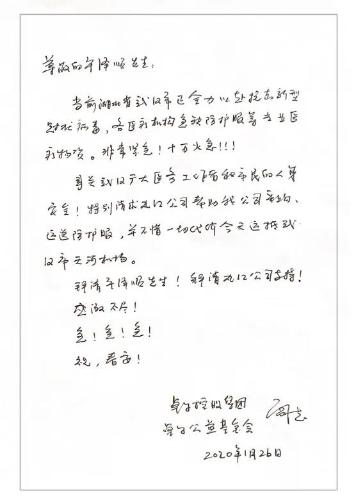 尊敬的年泽顺先生:
当前湖北省武汉市正全力以赴抗击新型
冠状病毒,各医疗机构急缺防护服等专业医
疗物资。非常紧急!十万火急!!!
事关武汉广大医务工作者和市民的人身
安全!特别请求 公司帮助我公司采购、
运送防护服,并不惜一切代价今天运抵武
汉市天河机场。
拜请年泽顺先生!拜请 公司支持!
感激不尽!
急!急!急!
祝,春安!
卓尔控股集团
卓尔公益基金会 阎志
2020年1月26日